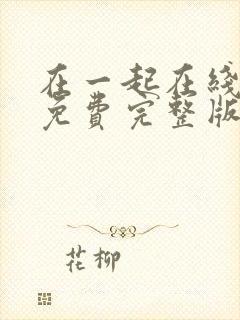 在一起在线
免费完整版
花柳